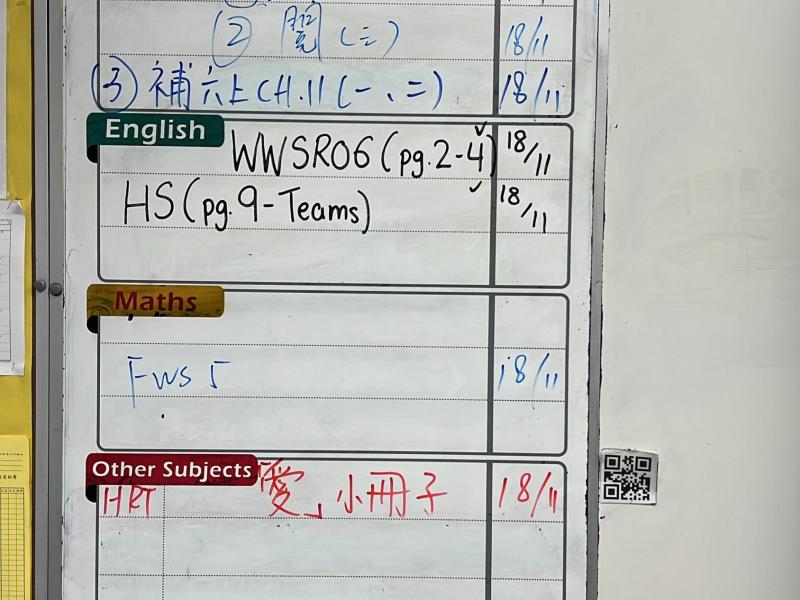 ② 閱(三) 18/11
③ 補六上CH.11(一、二) 18/11
English
WWSR06(pg.2-4) 18/11
HS(pg.9-Teams) 18/11
Maths
FWS 5 18/11
Other Subjects
HRT 「愛」小冊子 18/11